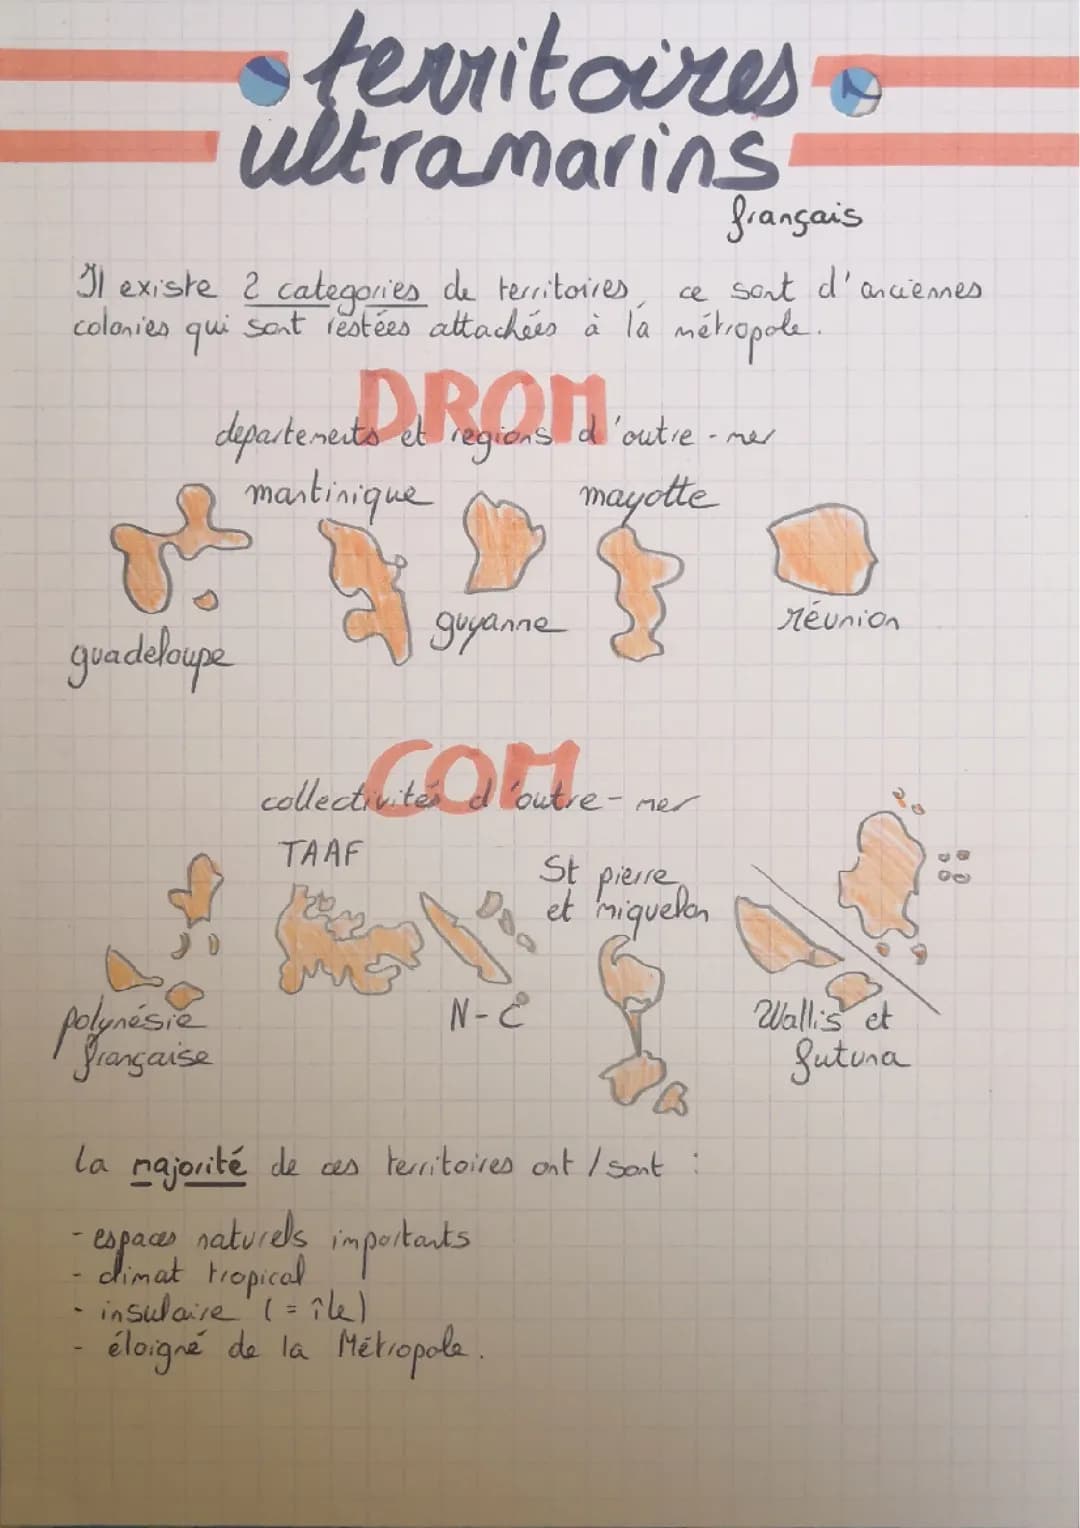 territoires
ultramarins
français
Il existe 2 categories de territoires, ce sont d'anciennes
colonies qui sont restées attachées à la métropole.
DROM
departements et regions d'outre-mer
martinique
mayotte
guyanne
réunion
guadeloupe
COM
collectivités d'outre-mer
TAAF
St pierre
et miquelon
polynésie
française
N-C
Wallis et
futuna
la majorité de ces territoires ont / sont :
- espaces naturels importants
- climat tropical
- insulaire (= île)
- éloigné de la Métropole.